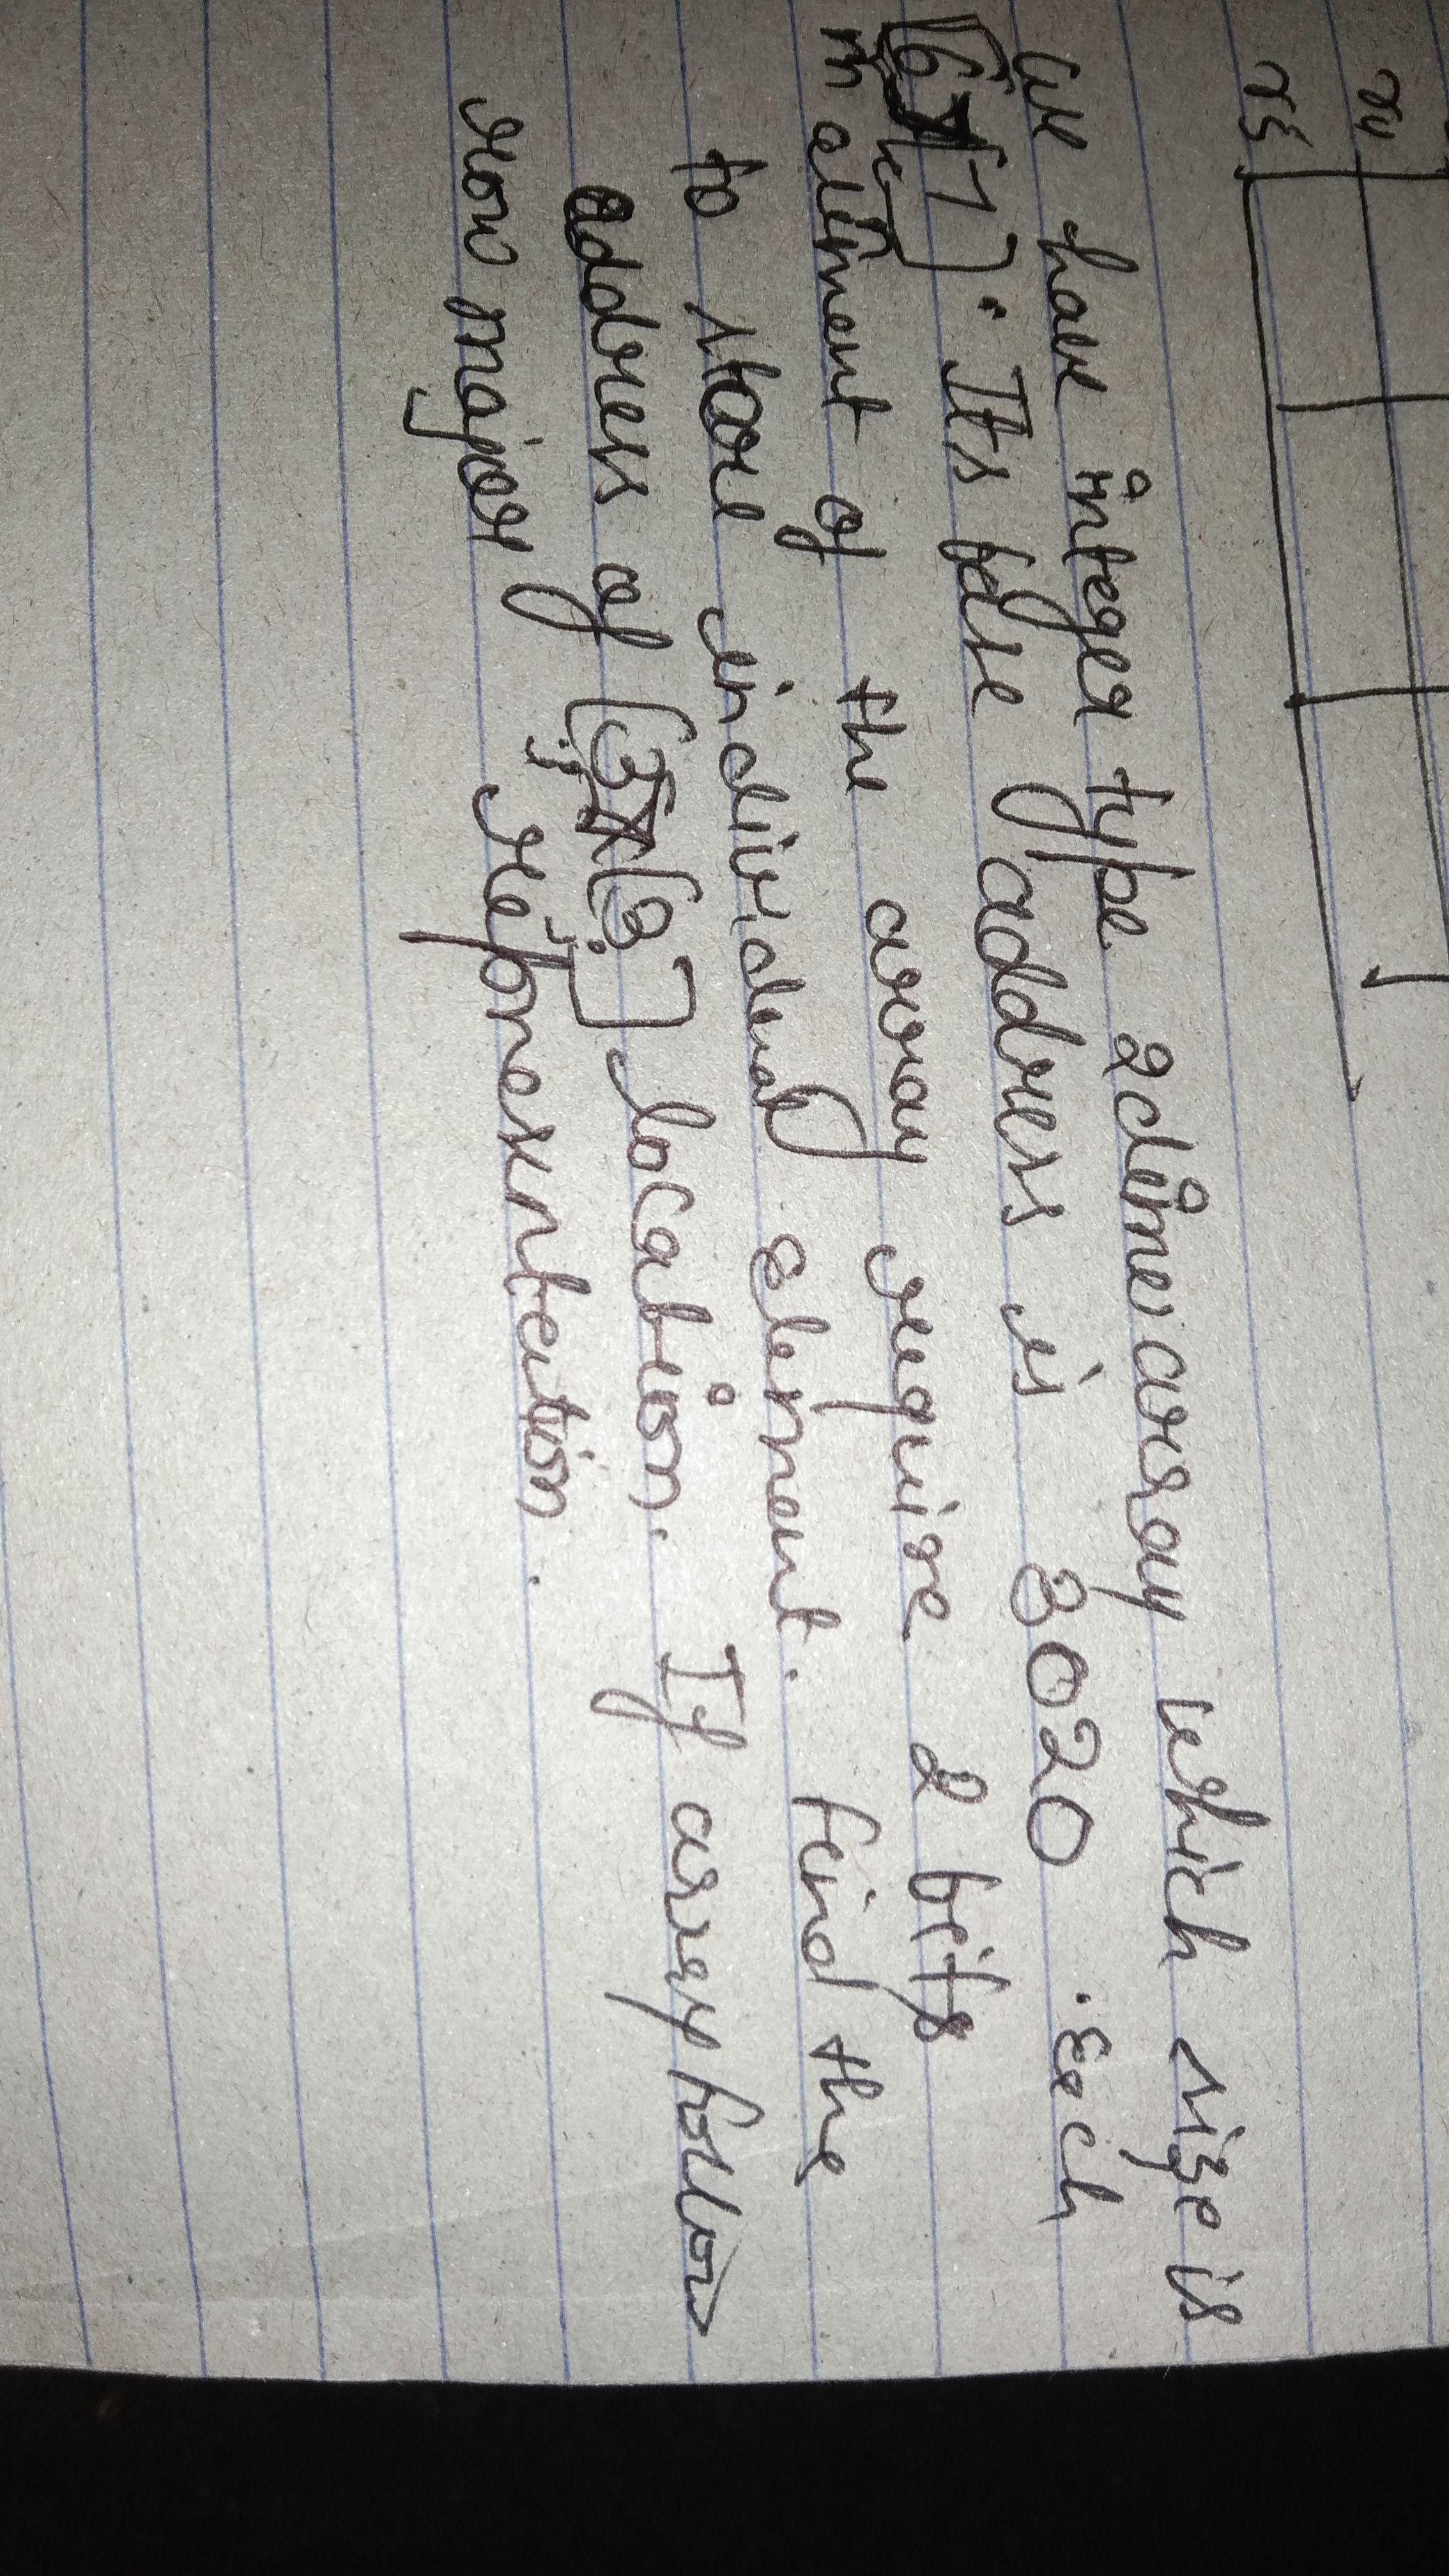 r4
r5
we have integer type 2dime array which size is
[6][7]. Its base address is 3020. Each
m n
aliment of the array require 2 bits
to store individual element. find the
address of [3][3] location. If array follow
i j
row major representation.